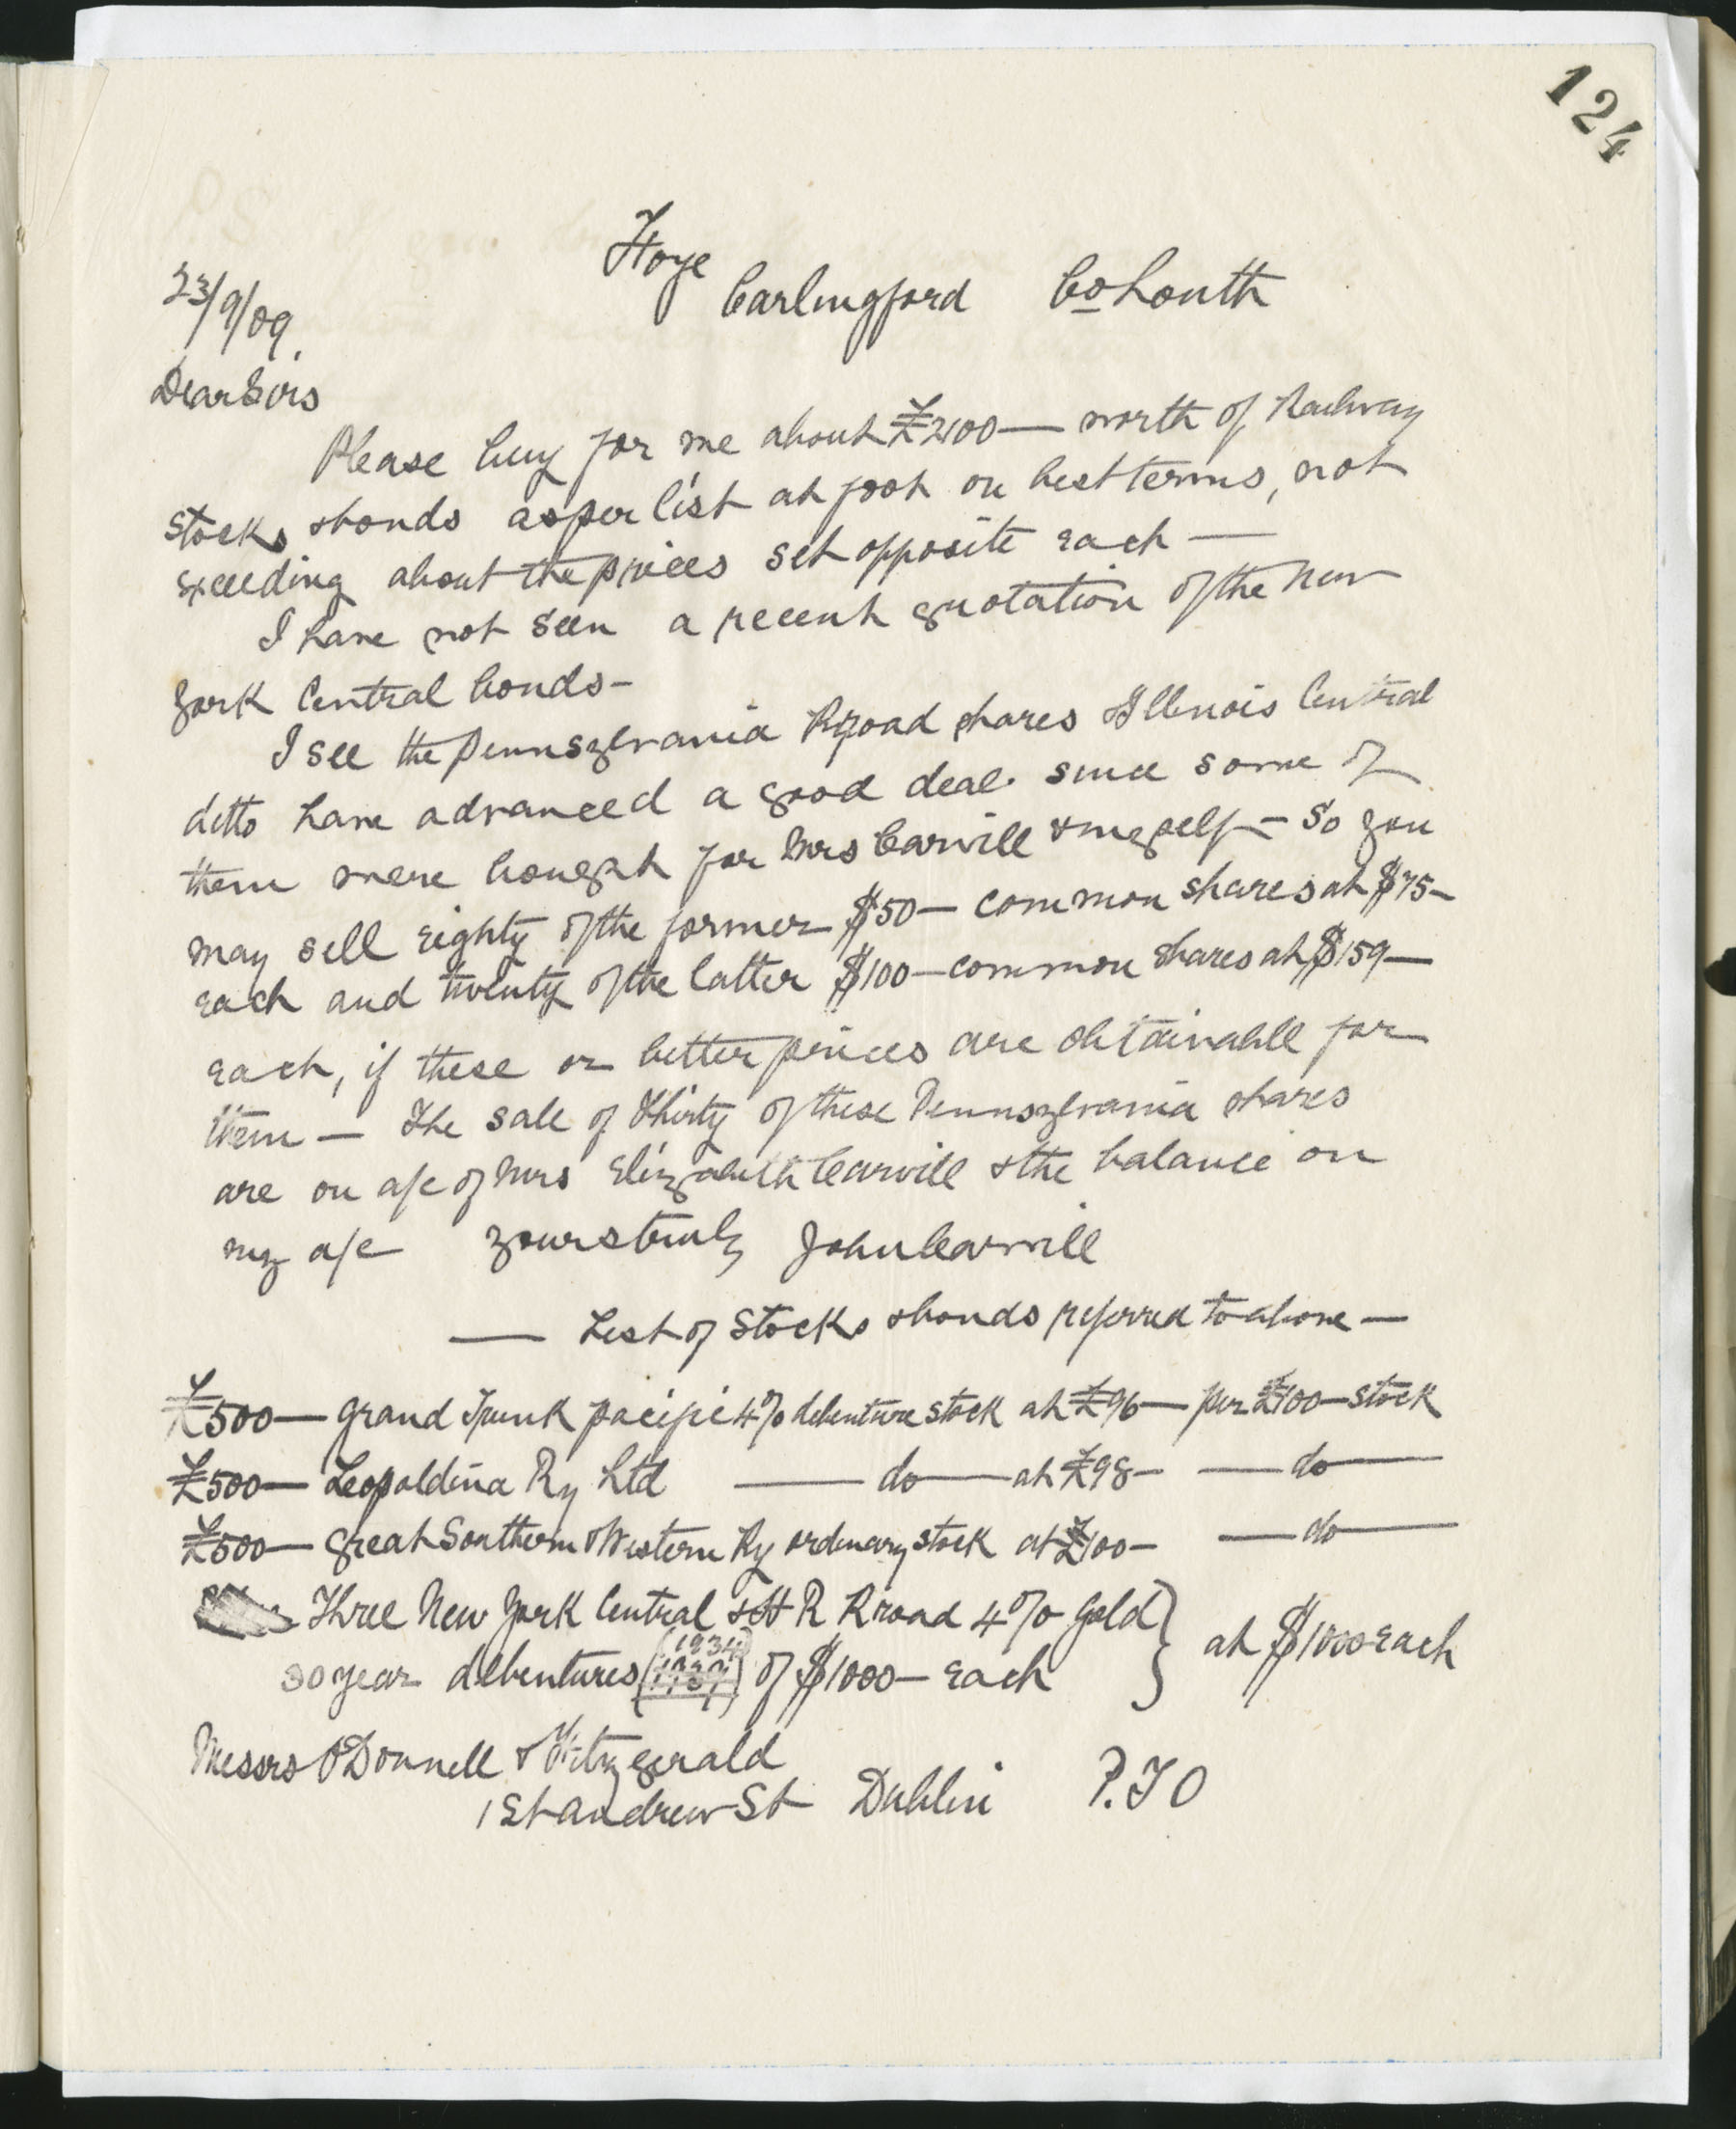 124
Foye
Carlingford Co Louth
23/9/09.
Dear Sirs
Please buy for me about £2100— worth of Railway
stocks & bonds as per list at foot on best terms, not
exceeding about the prices set opposite each —
I have not seen a recent quotation of the New
York Central bonds—
I see the Pennsylvania Rroad shares & Illinois Central
ditto have advanced a good deal since some of
them were bought for Mrs Carvill & myself — So you
may sell eighty of the former $50— common shares at $75—
each and twenty of the latter $100— common shares at $159—
each, if these or better prices are obtainable for
them — The sale of Thirty of these Pennsylvania shares
are on a/c of Mrs Elizabeth Carvill & the balance on
my a/c yours truly John Carvill
— List of Stocks & bonds referred to above —
£500— Grand Trunk pacific 4% debenture stock at £96— per £100— stock
£500— Leopoldina Ry Ltd — do — at £98— — do —
£500— Great Southern & Western Ry ordinary stock at £100— — do —
Three New York Central & H R Rroad 4% Gold
30 year debentures (1934) of $1000— each } at $1000 each
Messrs O'Donnell & Fitzgerald
1 St Andrew St Dublin P.T O